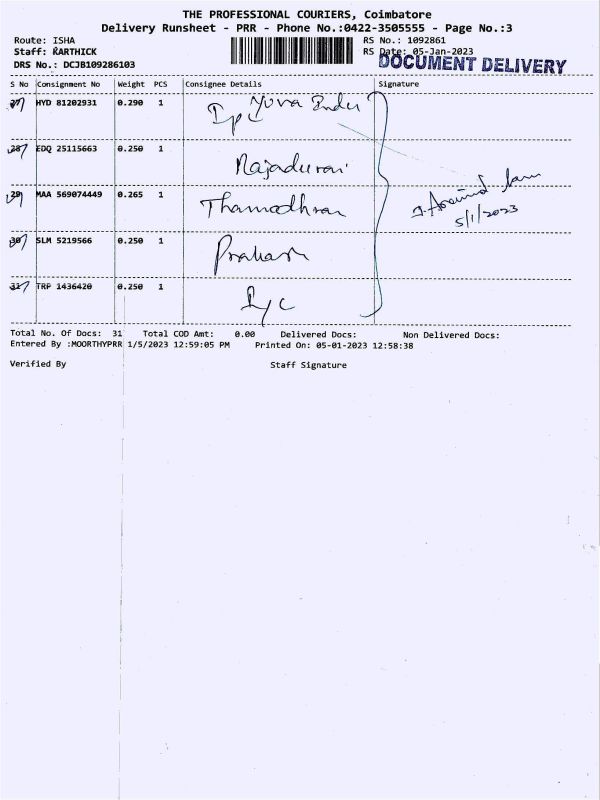 THE PROFESSIONAL COURIERS, Coimbatore
Delivery Runsheet - PRR - Phone No.:0422-3505555 - Page No.:3
Route: ISHA RS No.: 1092861
Staff: KARTHICK RS Date: 05-Jan-2023
DOCUMENT DELIVERY
DRS No.: DCJB109286103
S No Consignment No Weight PCS Consignee Details Signature
27 HYD 81202931 0.290 1 Yuva
28 EDQ 25115663 0.250 1 Rajadurai
29 MAA 569074449 0.265 1 Thamodhran
30 SLM 5219566 0.250 1 Prakash
31 TRP 1436420 0.250 1 Iyc
5/1/2023
Total No. Of Docs: 31 Total COD Amt: 0.00 Delivered Docs: Non Delivered Docs:
Entered By :MOORTHYPRR 1/5/2023 12:59:05 PM Printed On: 05-01-2023 12:58:38
Verified By Staff Signature